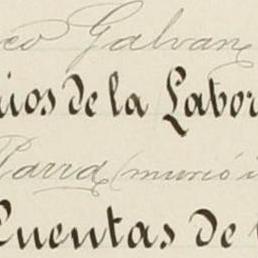 co Galvan
rios de la Labor
Parra (murió i
Cuentas de